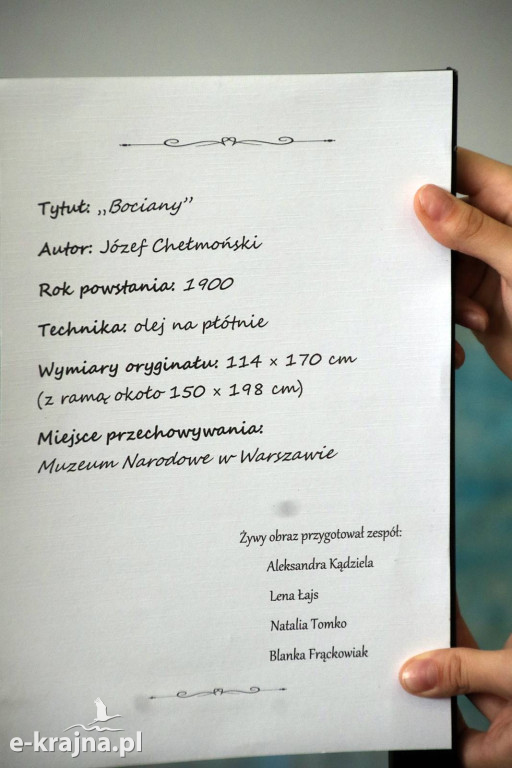 Tytuł: „Bociany”
Autor: Józef Chełmoński
Rok powstania: 1900
Technika: olej na płótnie
Wymiary oryginału: 114 × 170 cm
(z ramą około 150 × 198 cm)
Miejsce przechowywania:
Muzeum Narodowe w Warszawie
Żywy obraz przygotował zespół:
Aleksandra Kądziela
Lena Łajs
Natalia Tomko
Blanka Frąckowiak
e-krajna.pl